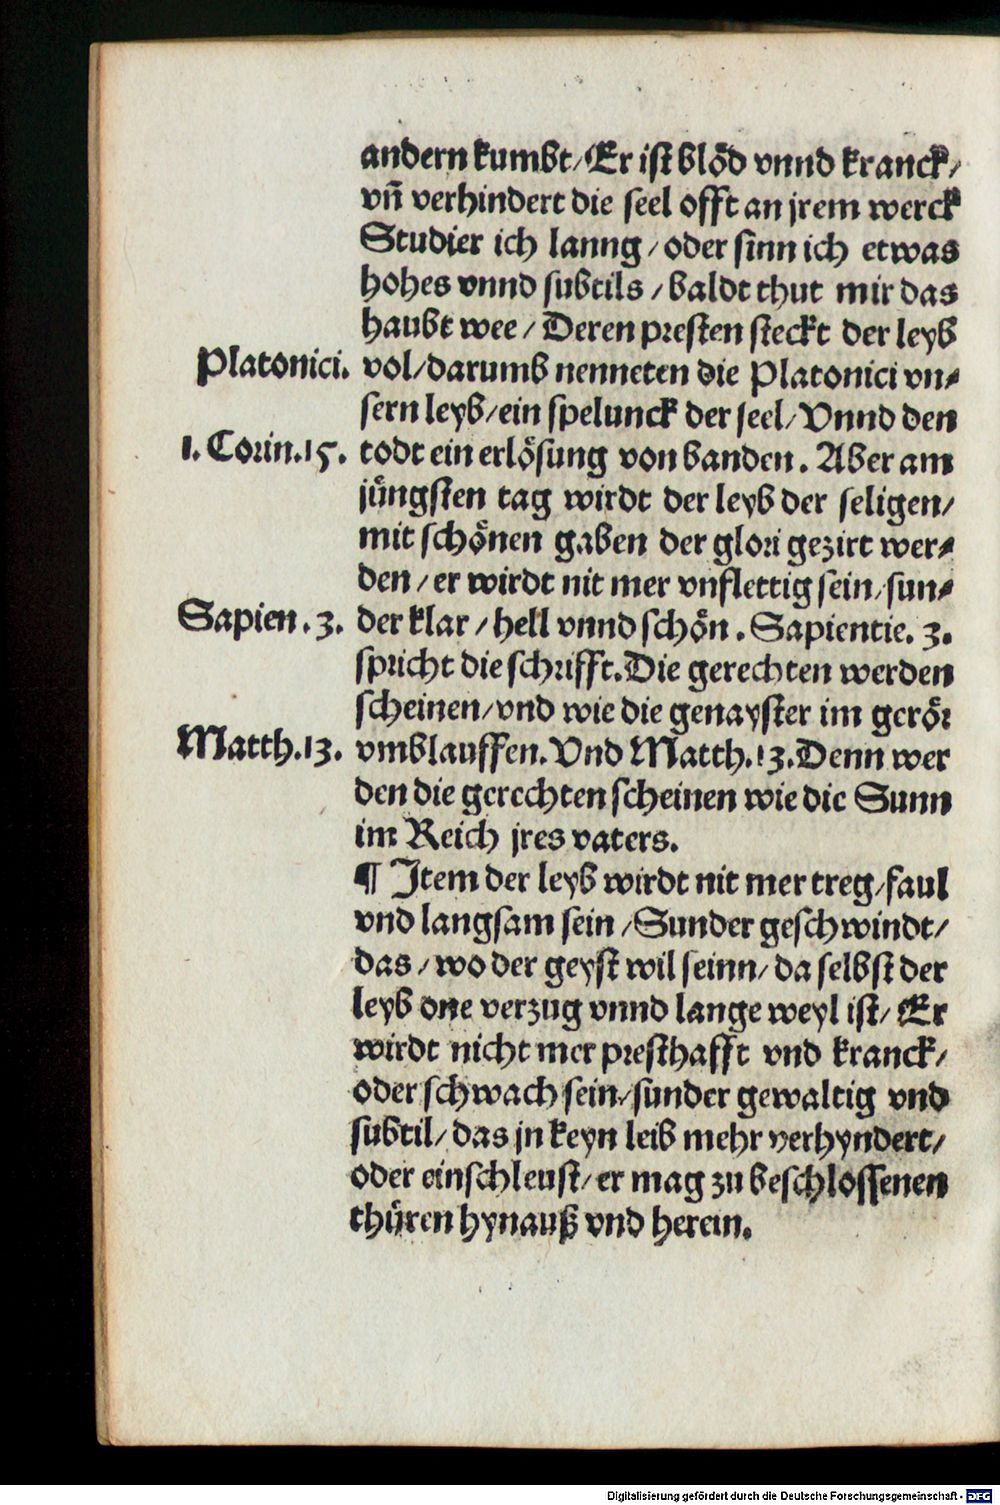 andern kumbt/Er ist blöd vnnd kranck/
vñ verhindert die seel offt an jrem werck
Studier ich lanng/oder sinn ich etwas
hohes vnnd subtils/baldt thut mir das
haubt wee/Deren presten steckt der leyb
Platonici. vol/darumb nenneten die Platonici vn⸗
sern leyb/ein spelunck der seel/Vnnd den
1. Corin.15. todt ein erlösung von banden. Aber am
jüngsten tag wirdt der leyb der seligen/
mit schönen gaben der glori gezirt wer⸗
den/er wirdt nit mer vnflettig sein/sun⸗
Sapien.3. der klar/hell vnnd schön. Sapientie. 3.
spricht die schrifft. Die gerechten werden
scheinen/vnd wie die genayster im gerör
Matth.13. vmblauffen. Vnd Matth.13. Denn wer
den die gerechten scheinen wie die Sunn
im Reich jres vaters.
¶ Item der leyb wirdt nit mer treg/faul
vnd langsam sein/Sunder geschwindt/
das/wo der geyst wil seinn/da selbst der
leyb one verzug vnnd lange weyl ist/Er
wirdt nicht mer presthafft vnd kranck/
oder schwach sein/sunder gewaltig vnd
subtil/das jn keyn leib mehr verhyndert/
oder einschleust/er mag zu beschlossenen
thüren hynauß vnd herein.
Digitalisierung gefördert durch die Deutsche Forschungsgemeinschaft - DFG